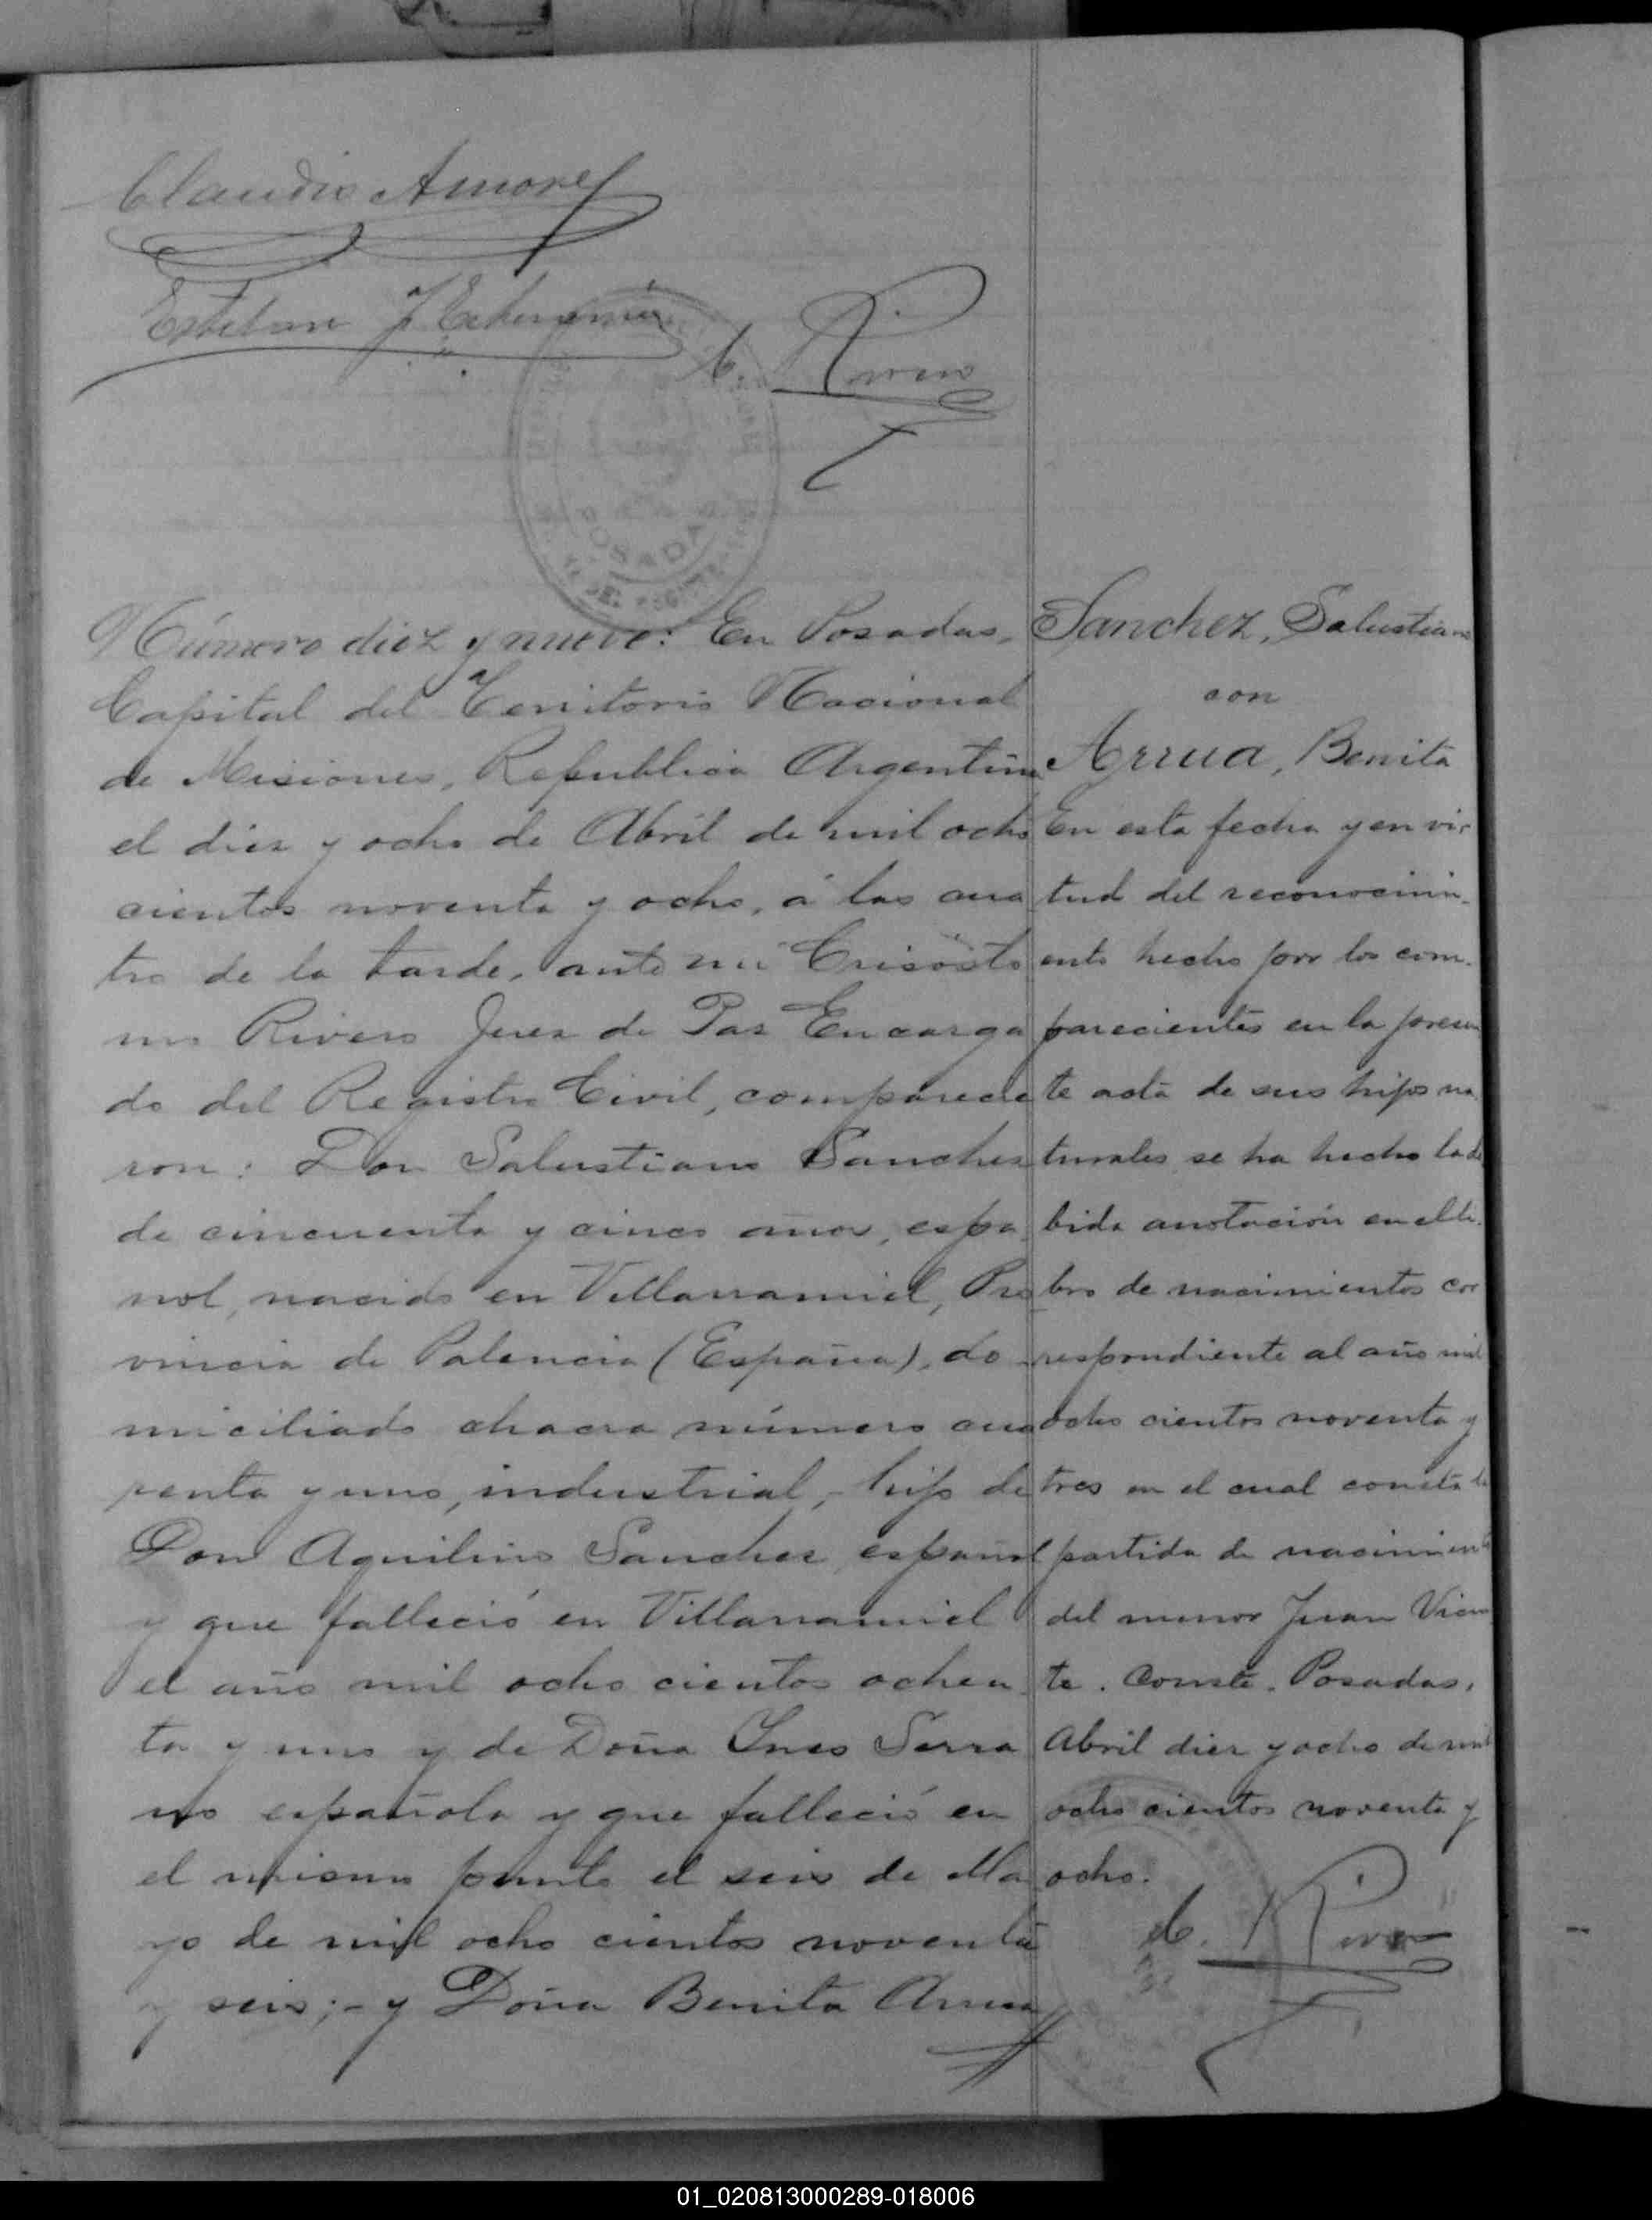 Claudio Amores
Esteban J. Echeverria
C. Rivero
POSADAS
Número diez y nueve: En Posadas,
Capital del Territorio Nacional
de Misiones, Republica Argentina
el diez y ocho de Abril de mil ocho
cientos noventa y ocho, á las cua
tro de la tarde, ante mi Crisósto
mo Rivero Juez de Paz Encarga
do del Registro Civil, comparecie
ron: Don Salustiano Sanchez
de cincuenta y cinco años, espa
ñol, nacido en Villarramiel, Pro
vincia de Palencia (España), do
miciliado chacra número cua
renta y uno, industrial, - hijo de
Don Aquilino Sanchez, español
y que falleció en Villarramiel
el año mil ocho cientos ochen
ta y uno y de Doña Ines Serra
no española y que falleció en
el mismo punto el seis de Ma
yo de mil ocho cientos noventa
y seis; - y Doña Benita Arrua
Sanchez, Salustiano
con
Arrua, Benita
En esta fecha y en vir
tud del reconocimi-
ento hecho por los com-
parecientes en la presen
te acta de sus hijos na
turales se ha hecho la de
bida anotación en el li-
bro de nacimientos cor
respondiente al año mil
ocho cientos noventa y
tres en el cual consta la
partida de nacimiento
del menor Juan Vicen
te. Conste. Posadas,
Abril diez y ocho de mil
ocho cientos noventa y
ocho.
C. Rivero
01_020813000289-018006